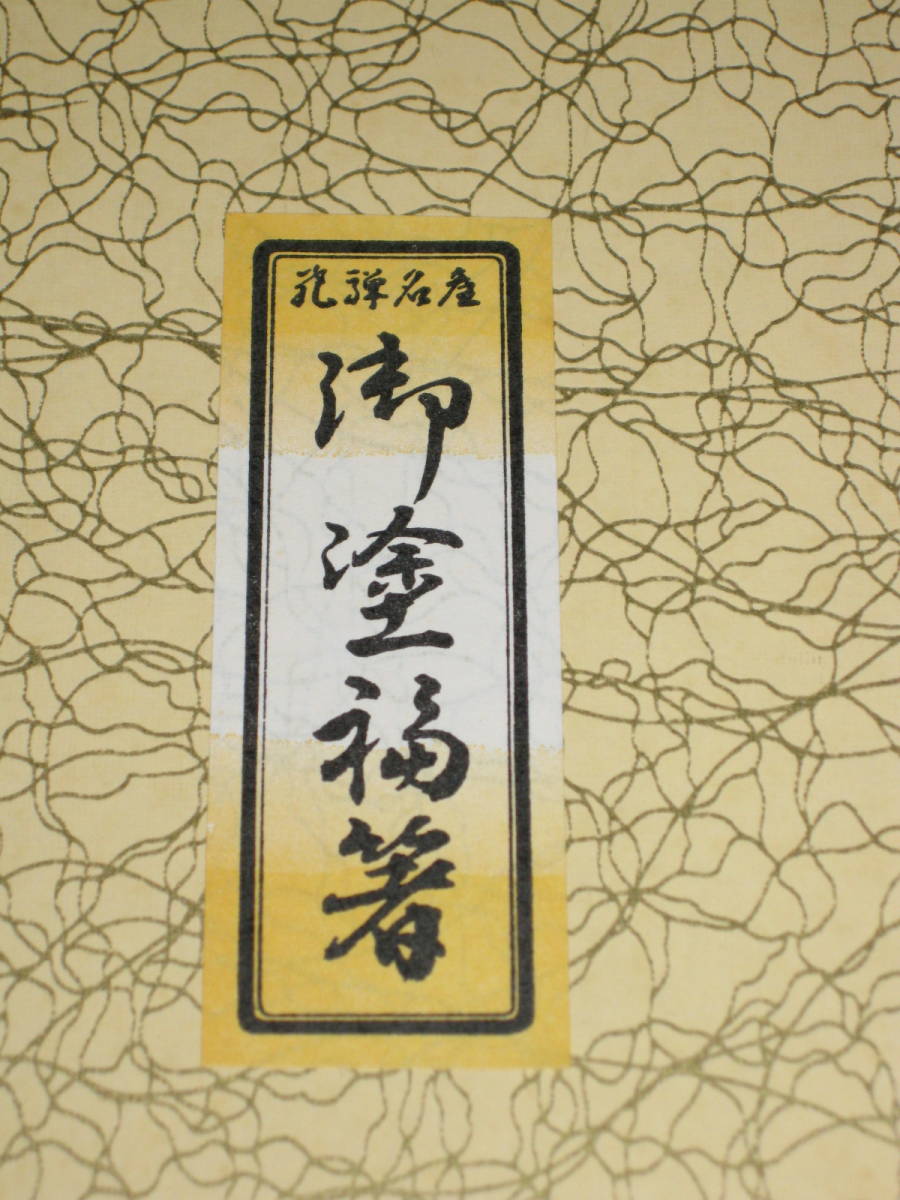 飛騨名産
御塗福箸